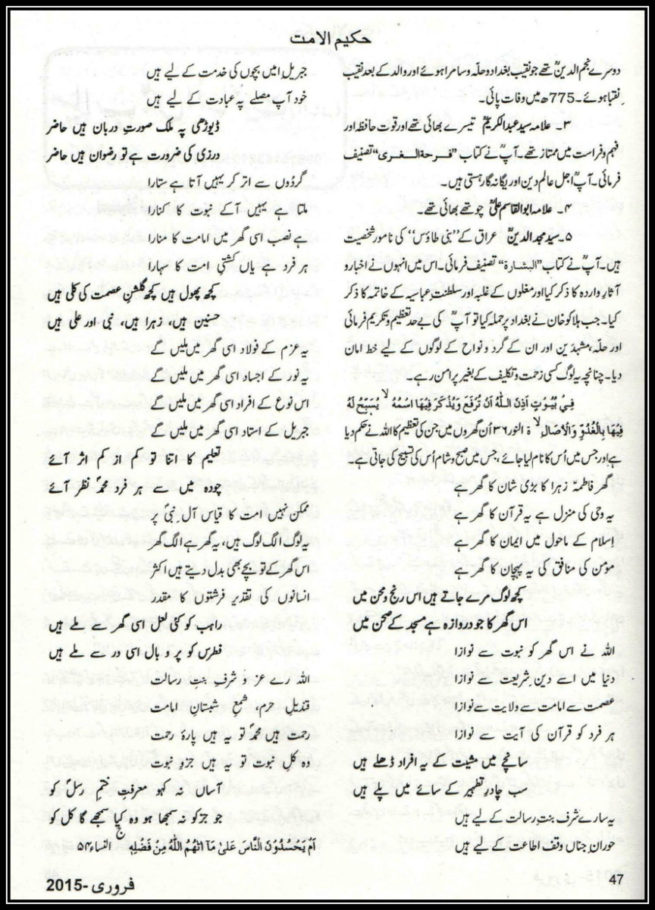 حکیم الامت
دوسرے نجم الدینؒ تھے جو نقیب بغداد و حلّہ و سامرا ہوئے اور والد کے بعد نقیب
نقبا ہوئے۔ 775ھ میں وفات پائی۔
۳۔ علامہ سید عبدالکریمؒ تیسرے بھائی تھے اور قوت حافظہ اور
فہم و فراست میں ممتاز تھے۔ آپؒ نے کتاب "فرحۃ الغری" تصنیف
فرمائی۔ آپؒ اجل عالم دین اور یگانہ روزگار ہستی ہیں۔
۴۔ علامہ ابوالقاسم علیؒ چوتھے بھائی تھے۔
۵۔ سید مجد الدینؒ عراق کے "بنی طاؤس" کی نامور شخصیت
ہیں۔ آپؒ نے کتاب "البشارۃ" تصنیف فرمائی۔ اس میں انہوں نے اخبار و
آثارِ واردہ کا ذکر کیا اور مغلوں کے غلبہ اور سلطنت عباسیہ کے خاتمہ کا ذکر
کیا۔ جب ہلاکو خان نے بغداد پر حملہ کیا تو آپؒ کی بے حد تعظیم و تکریم فرمائی
اور حلّہ، مشہدَین اور ان کے گرد و نواح کے لوگوں کے لیے خط امان
دیا۔ چنانچہ یہ لوگ کسی زحمت و تکلیف کے بغیر پرامن رہے۔
فِیْ بُیُوْتٍ اَذِنَ اللّٰہُ اَنْ تُرْفَعَ وَیُذْکَرَ فِیْھَا اسْمُہٗ لا یُسَبِّحُ لَہٗ
فِیْھَا بِالْغُدُوِّ وَالْاٰصَالِ لا ہ النور ۳۶ اُن گھروں میں جن کی تعظیم کا اللہ نے حکم دیا
ہے اور جس میں اُس کا نام لیا جائے، جس میں صبح و شام اُس کی تسبیح کی جاتی ہے۔
گھر فاطمۂ زہرا کا بڑی شان کا گھر ہے
یہ وحی کی منزل ہے یہ قرآن کا گھر ہے
اسلام کے ماحول میں ایمان کا گھر ہے
مومن کی منافق کی یہ پہچان کا گھر ہے
کچھ لوگ مرے جاتے ہیں اس رنج و محن میں
اس گھر کا جو دروازہ ہے مسجد کے صحن میں
اللہ نے اس گھر کو نبوت سے نوازا
دنیا میں اسے دین شریعت سے نوازا
عصمت سے امامت سے ولایت سے نوازا
ہر فرد کو قرآن کی آیت سے نوازا
سانچے میں مشیت کے یہ افراد ڈھلے ہیں
سب چادرِ تطہیر کے سائے میں پلے ہیں
یہ سارے شرف بنت رسالت کے لیے ہیں
حورانِ جناں وقف اطاعت کے لیے ہیں
جبریل امیں بچوں کی خدمت کے لیے ہیں
خود آپ مصلے پہ عبادت کے لیے ہیں
ڈیوڑھی پہ ملک صورت درباں ہیں حاضر
درزی کی ضرورت ہے تو رضوان ہیں حاضر
گردُوں سے اتر کر یہیں آتا ہے ستارا
ملتا ہے یہیں آکے نبوت کا کنارا
ہے نصب اسی گھر میں امامت کا منارا
ہر فرد ہے یاں کشتیٔ امت کا سہارا
کچھ پھول ہیں کچھ گلشنِ عصمت کی کلی ہیں
حسنین ہیں، زہرا ہیں، نبی اور علی ہیں
یہ عزم کے فولاد اسی گھر میں ملیں گے
یہ نور کے اجساد اسی گھر میں ملیں گے
اس نوع کے افراد اسی گھر میں ملیں گے
جبریل کے استاد اسی گھر میں ملیں گے
تعلیم کا اتنا تو کم از کم اثر آئے
چودہ میں سے ہر فرد محمدؐ نظر آئے
ممکن نہیں امت کا قیاس آلِ نبی پر
یہ لوگ الگ لوگ ہیں، یہ گھر ہے الگ گھر
اس گھر کے تو بچے بھی بدل دیتے ہیں اکثر
انسانوں کی تقدیر فرشتوں کا مقدر
راہب کو کئی لعل اسی گھر سے ملے ہیں
فطرس کو پر و بال اسی در سے ملے ہیں
اللہ رے عز و شرفِ بنتِ رسالت
قندیلِ حرم، شمعِ شبستانِ امامت
رحمت ہیں محمدؐ تو یہ ہیں پارۂ رحمت
وہ کلِ نبوت تو یہ ہیں جزوِ نبوت
آساں نہ کہو معرفتِ ختمِ رسلؐ کو
جو جز کو نہ سمجھا ہو وہ کیا سمجھے گا کل کو
اَمْ یَحْسُدُوْنَ النَّاسَ عَلٰی مَآ اٰتٰھُمُ اللّٰہُ مِنْ فَضْلِہٖ ج النساء ۵۴
47
فروری -2015